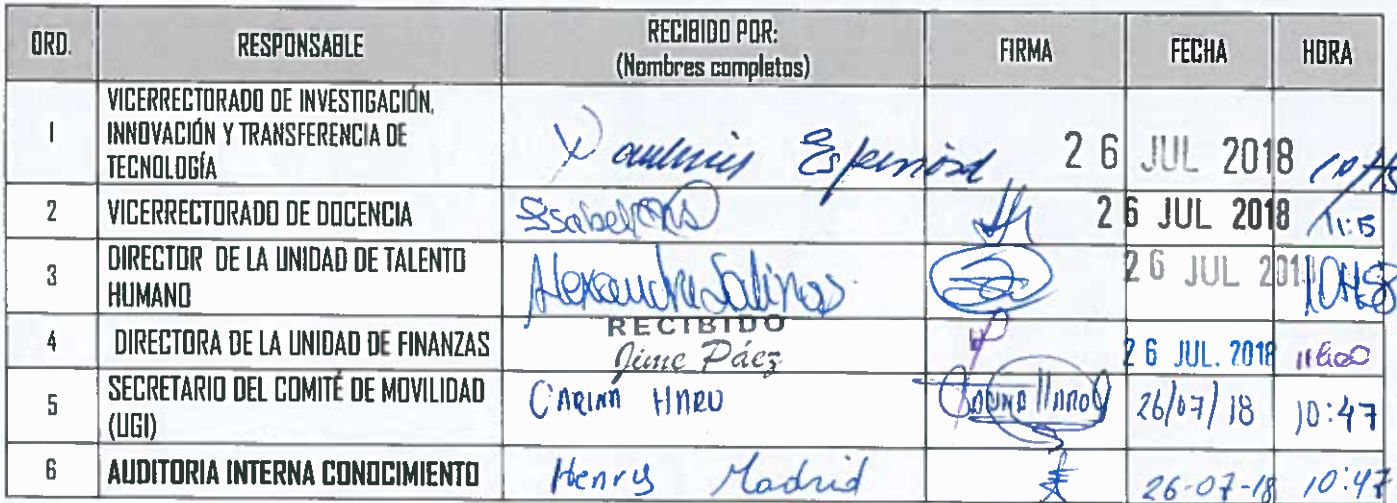 ORD. RESPONSABLE RECIBIDO POR: FIRMA FECHA HORA
(Nombres completos)
1 VICERRECTORADO DE INVESTIGACIÓN, INNOVACIÓN Y TRANSFERENCIA DE TECNOLOGÍA 26 JUL 2018
2 VICERRECTORADO DE DOCENCIA 26 JUL 2018 11:15
3 DIRECTOR DE LA UNIDAD DE TALENTO HUMANO Alexandra Salinas 26 JUL 201
4 DIRECTORA DE LA UNIDAD DE FINANZAS RECIBIDO Jime Páez 26 JUL. 2018
5 SECRETARIO DEL COMITÉ DE MOVILIDAD (UGI) CARINA HARO 26/07/18 10:47
6 AUDITORIA INTERNA CONOCIMIENTO Henry Madrid 26-07-18 10:47